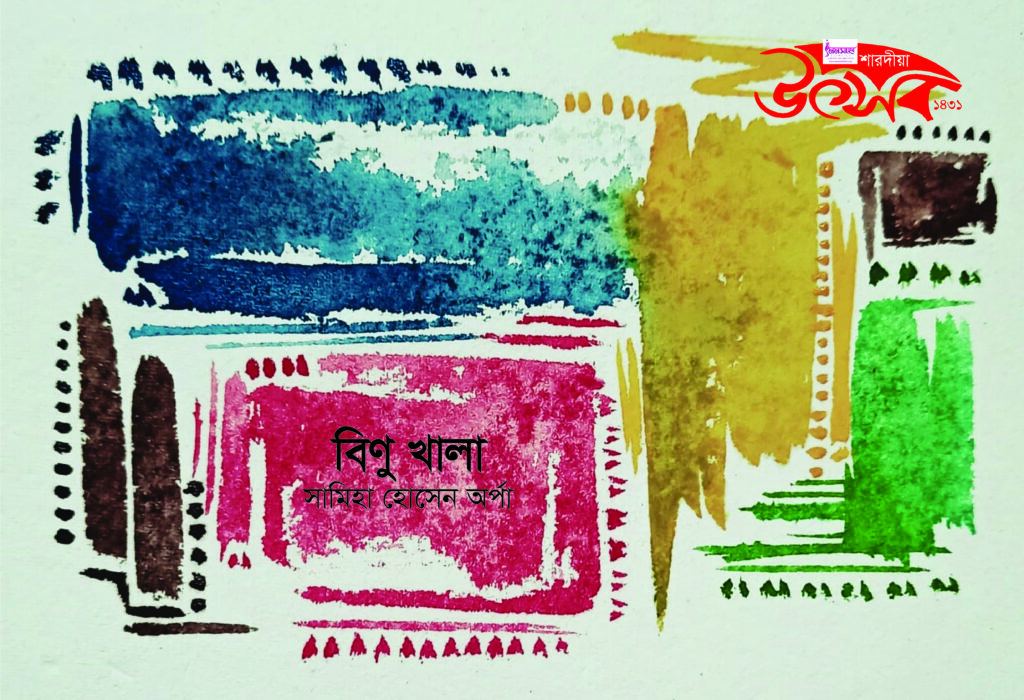 শারদীয়া
উৎসব
১৪৩১
বিণু খালা
সামিহা হোসেন অর্পা